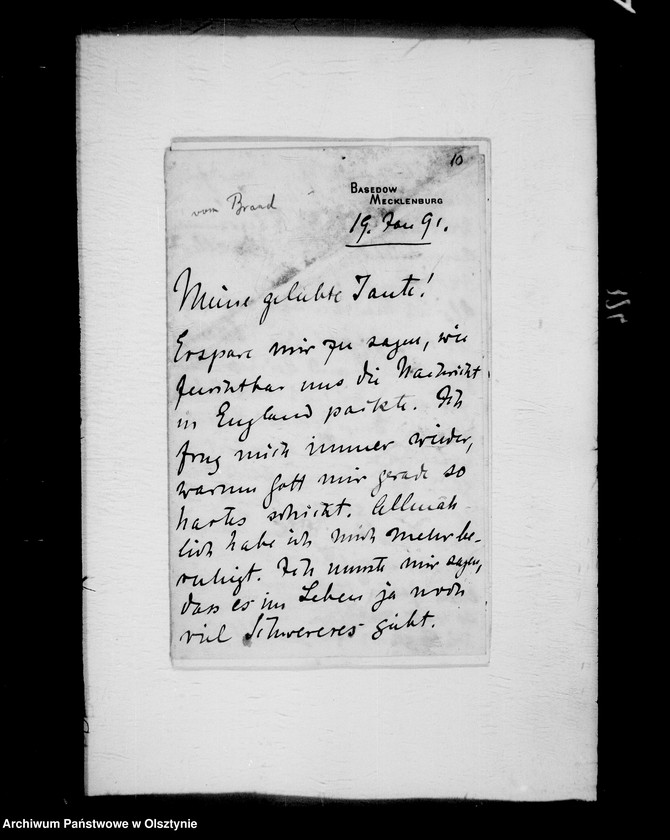 10
vom Brand
BASEDOW
MECKLENBURG
19. Jan 91.
Meine geliebte Tante!
Erspare mir zu sagen, wie
furchtbar uns die Nachricht
in England packte. Ich
frug mich immer wieder,
warum Gott mir gerade so
hartes schickt. Allmäh-
lich habe ich mich mehr be-
ruhigt. Ich musste mir sagen,
dass es im Leben ja noch
viel Schwereres giebt.
Archiwum Państwowe w Olsztynie